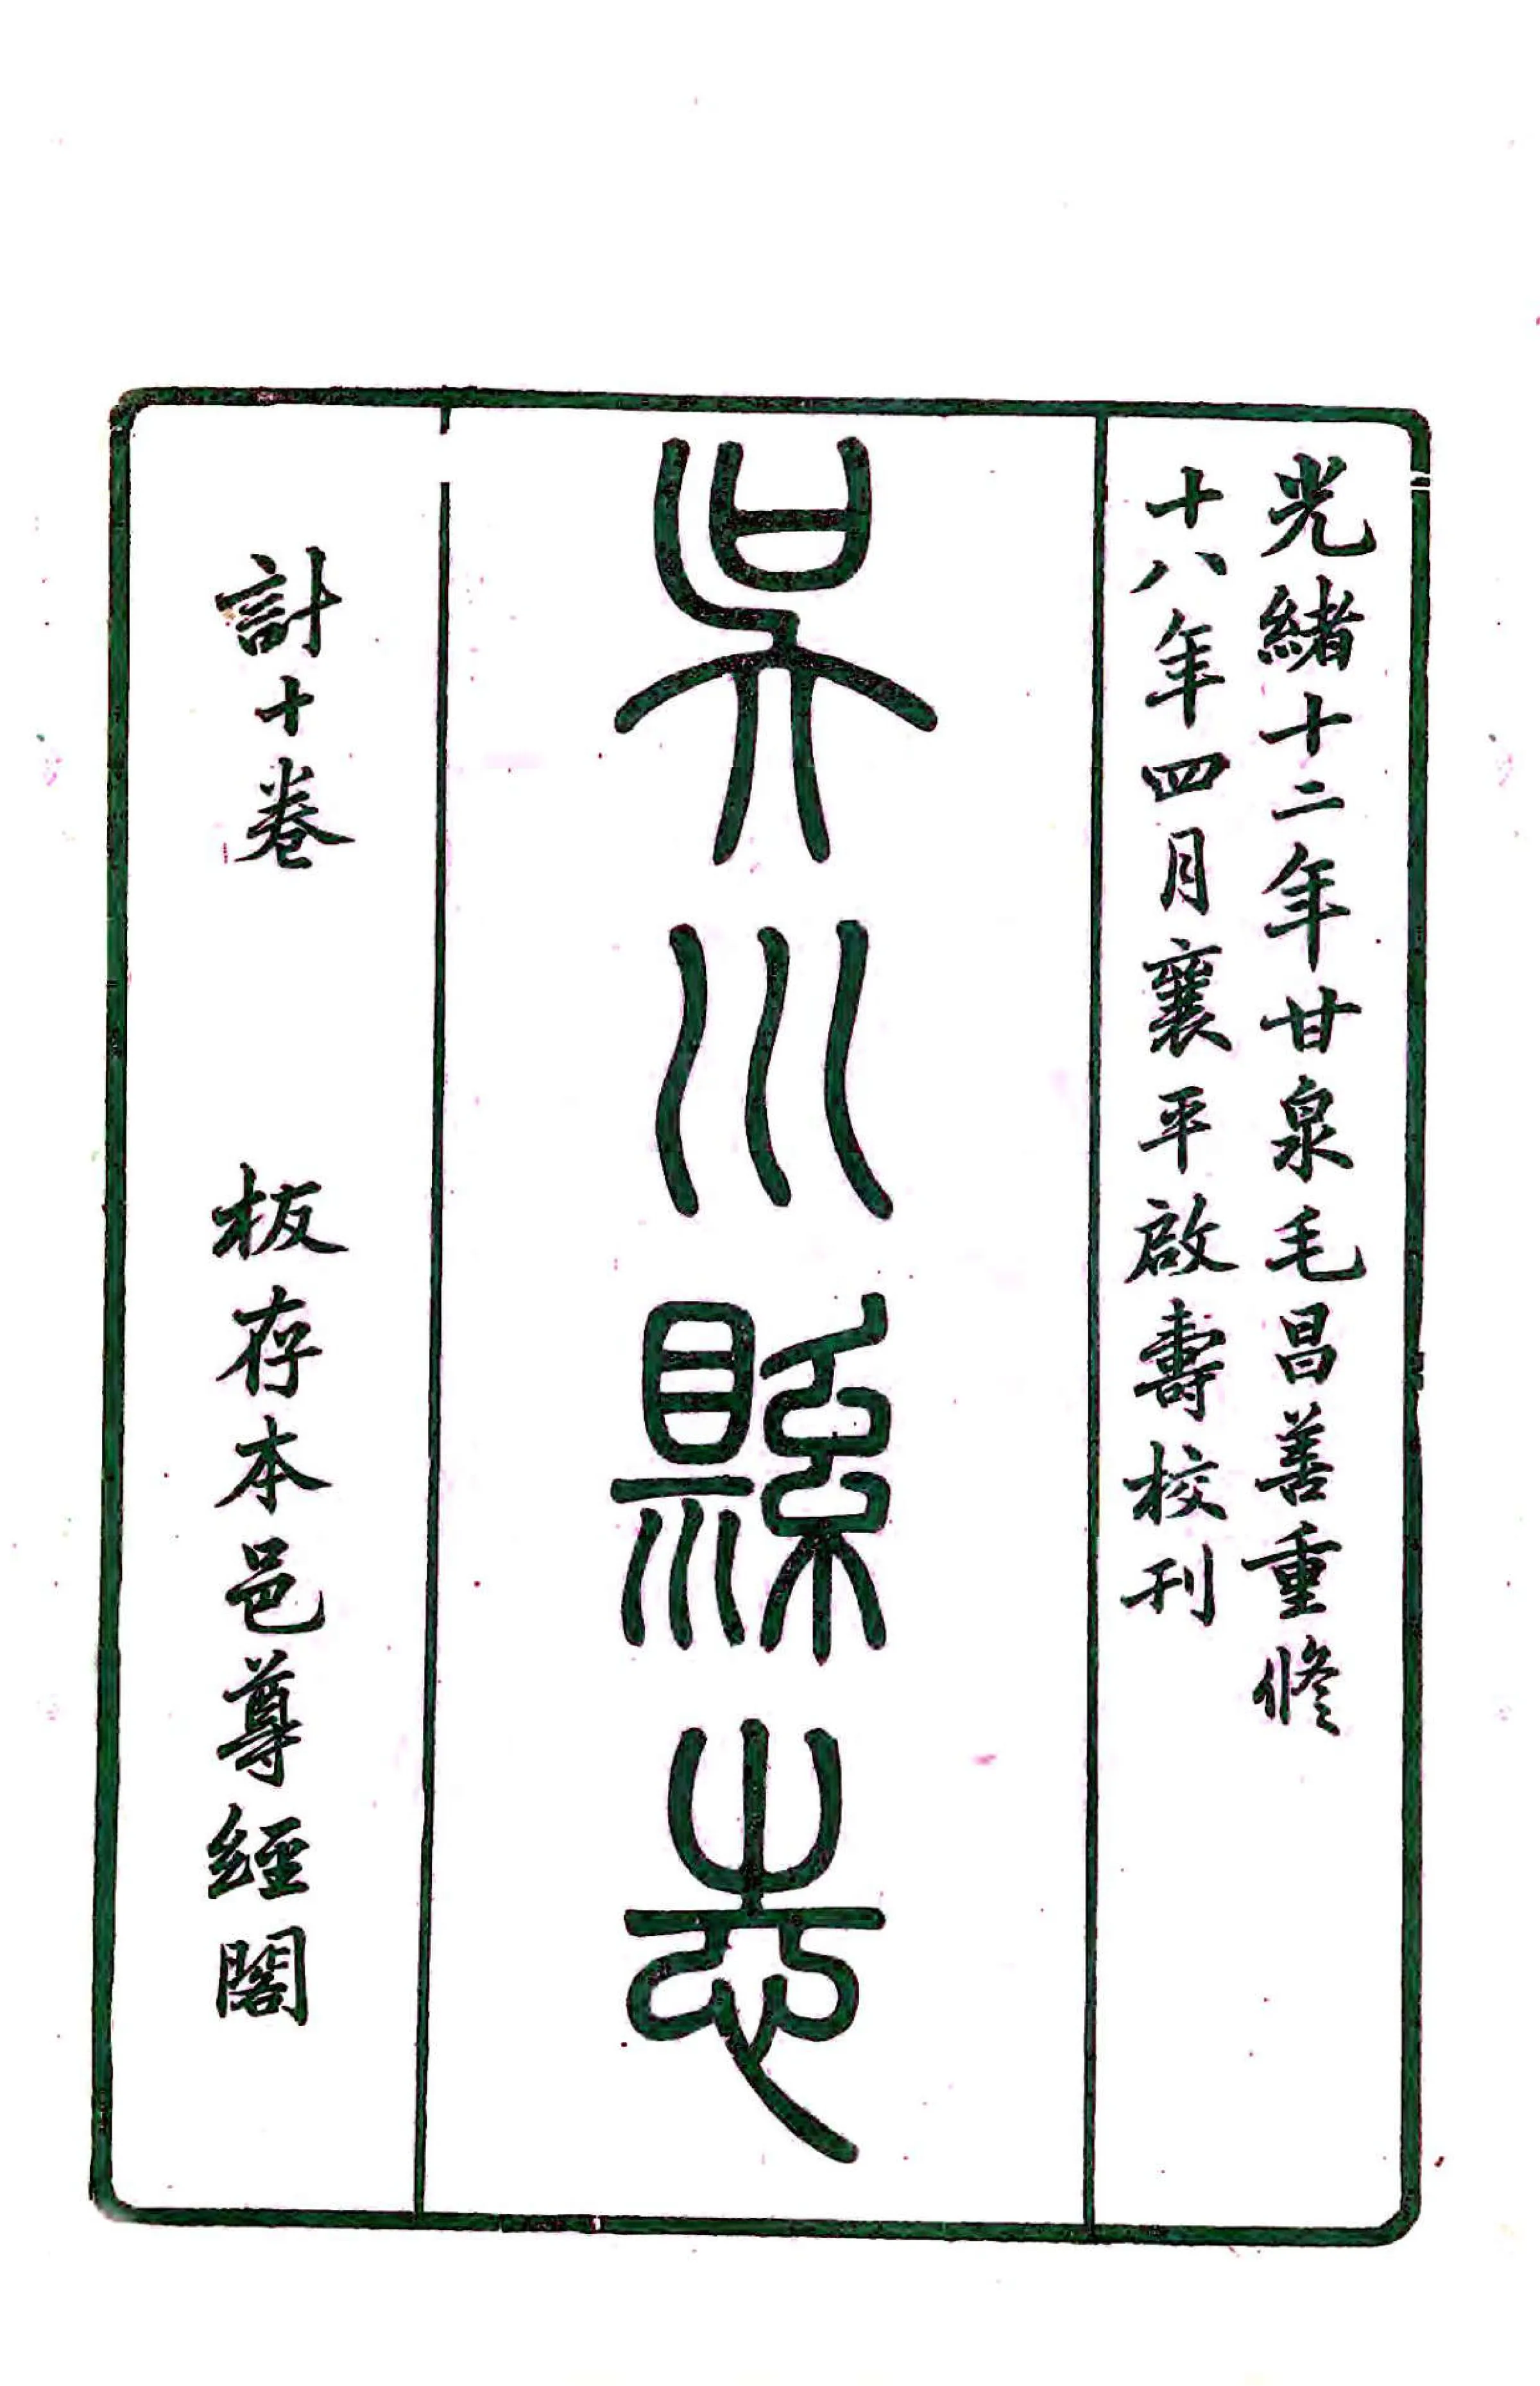 光緒十二年甘泉毛昌善重修
十八年四月襄平啟壽校刊
吳川縣志
計十卷
板存本邑尊經閣